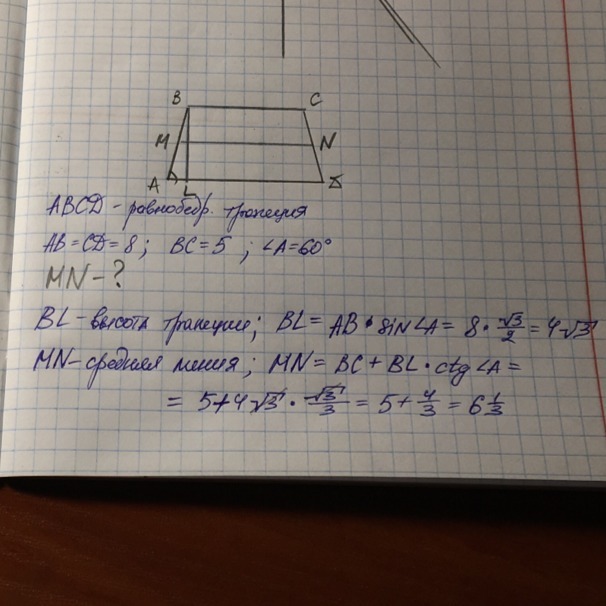 B C
M N
A L D
ABCD - равнобедр. трапеция
AB = CD = 8; BC = 5; ∠A = 60°
MN - ?
BL - высота трапеции; BL = AB · sin∠A = 8 · √3/2 = 4√3
MN - средняя линия; MN = BC + BL · ctg∠A =
= 5 + 4√3 · √3/3 = 5 + 4/3 = 6 1/3